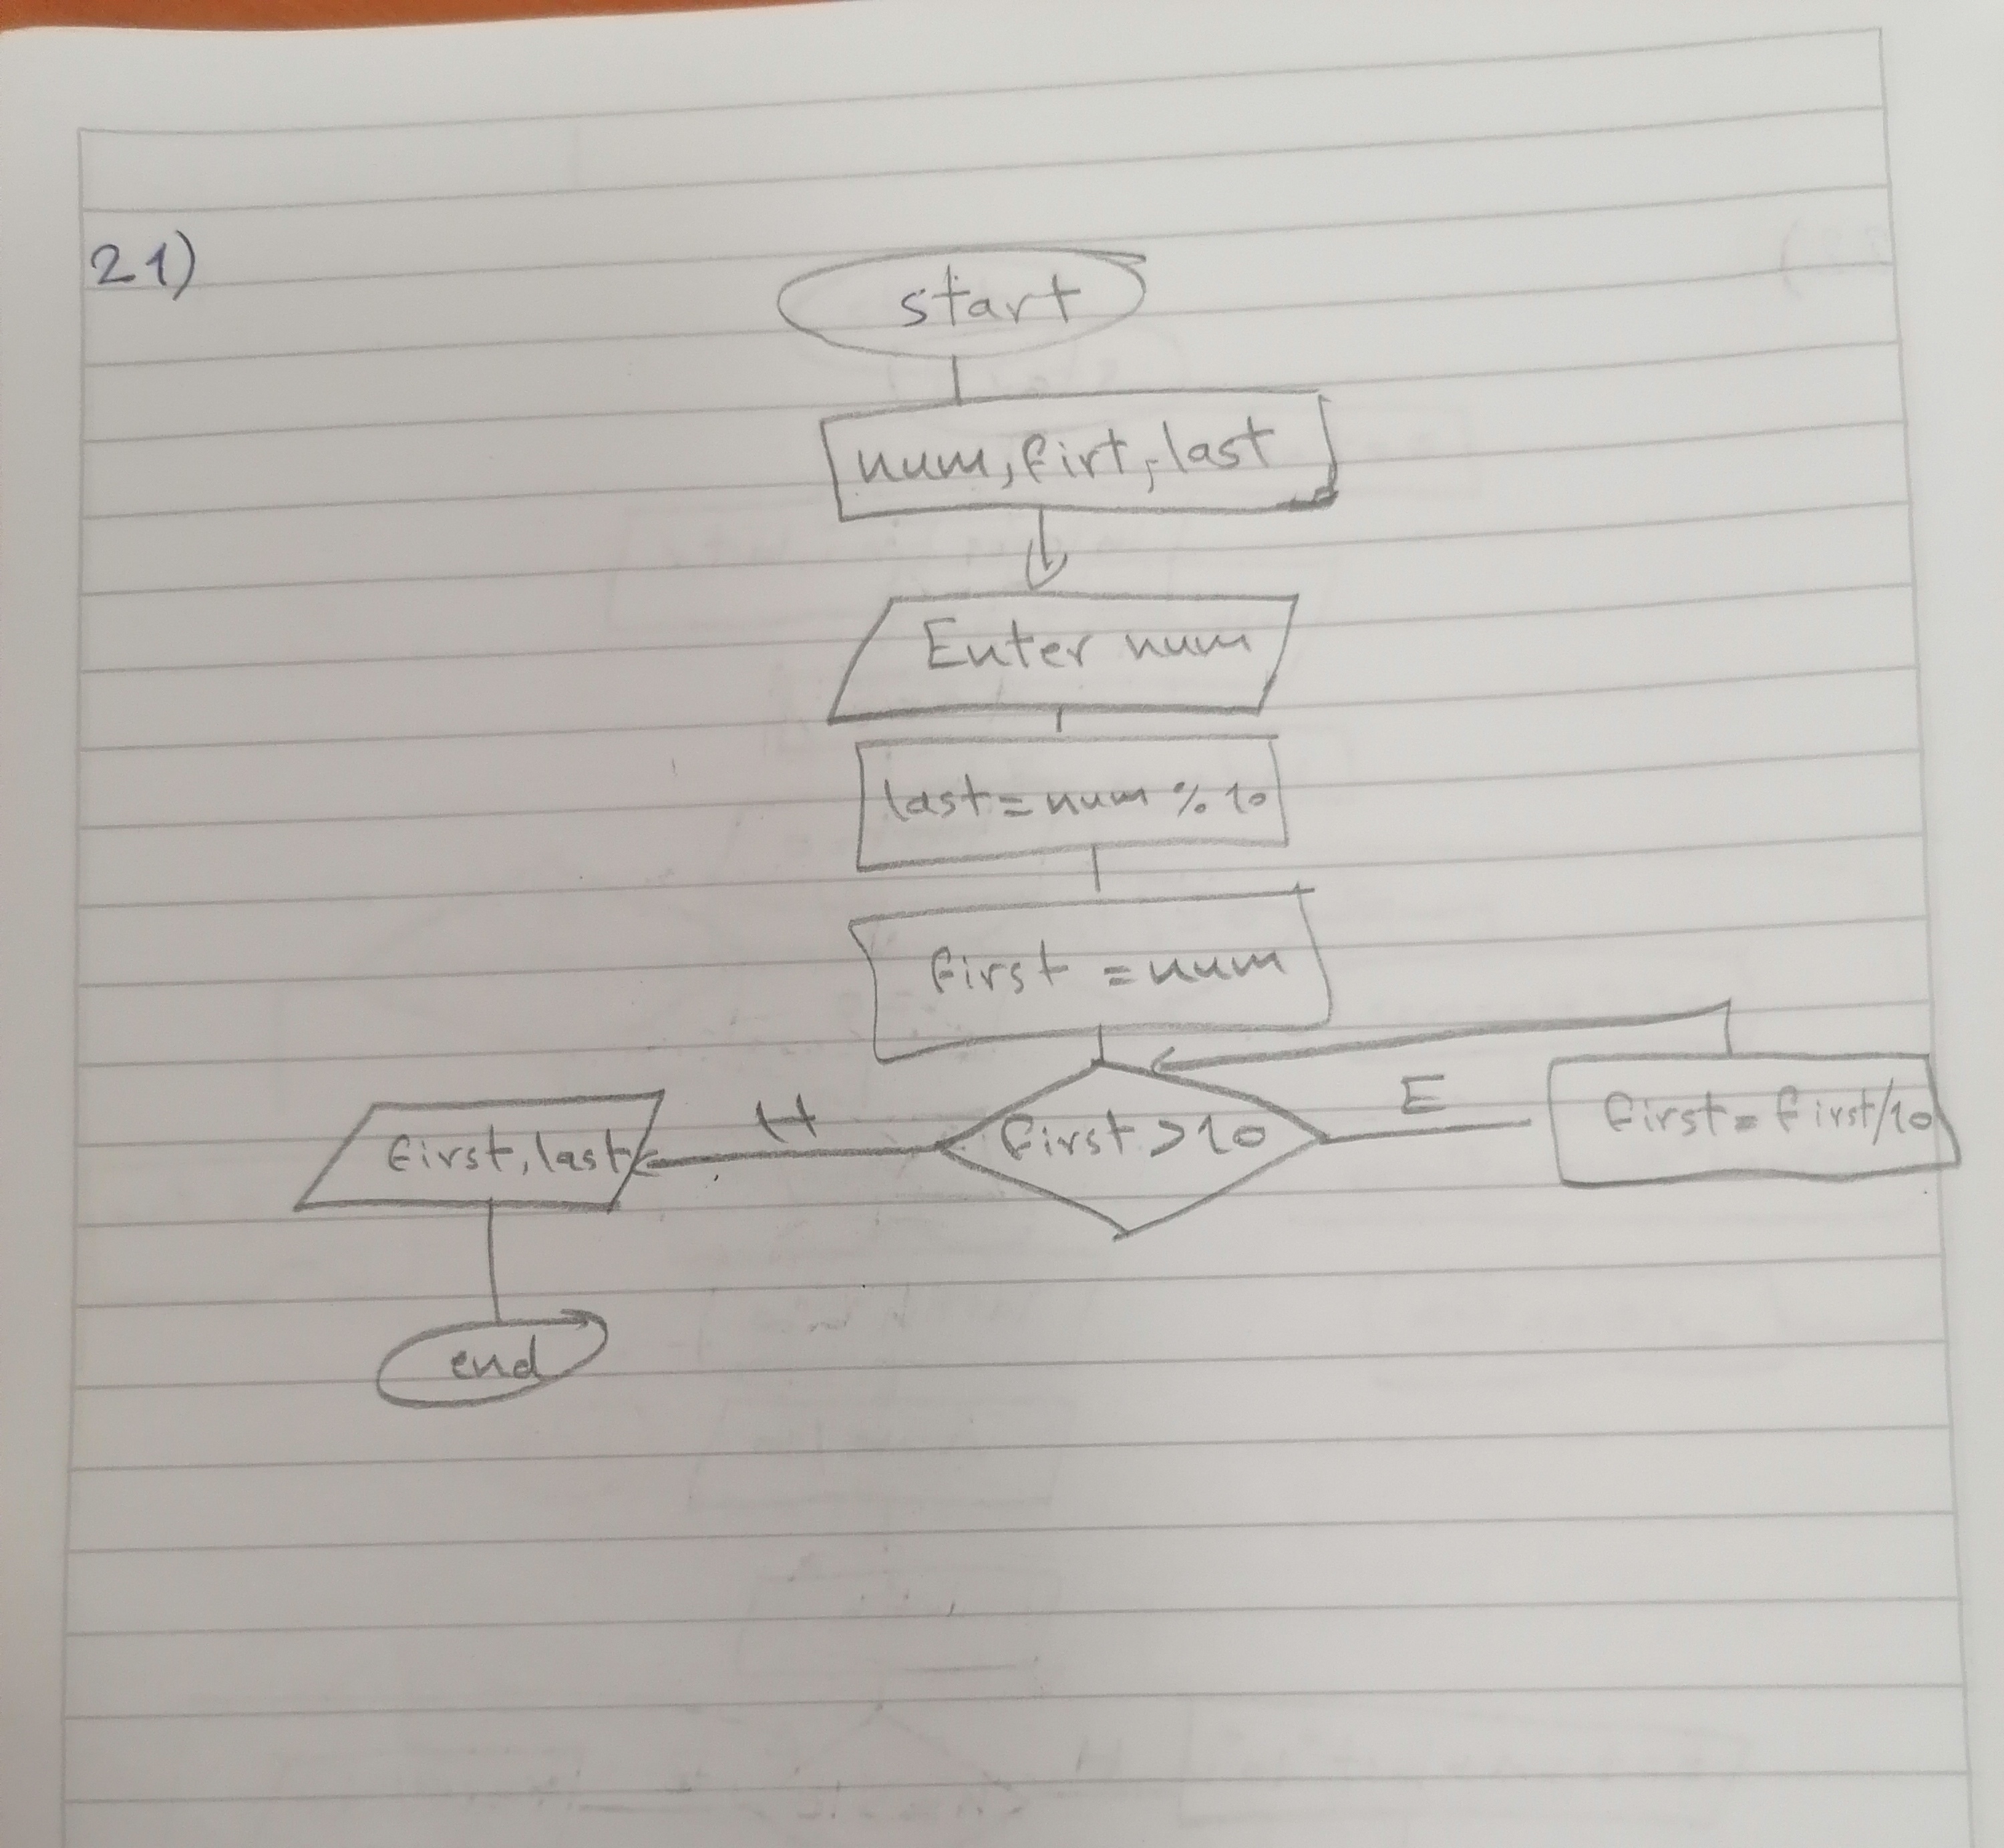 21)
start
num, firt, last
Enter num
last = num % 10
first = num
first, last
H
first > 10
E
first = first/10
end